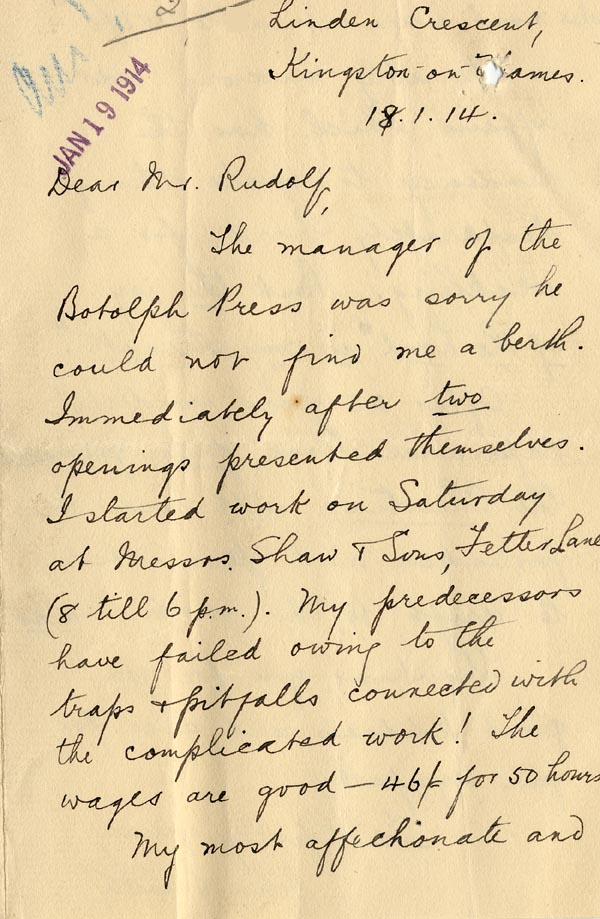 Linden Crescent,
Kingston-on-Thames.
18.1.14.
JAN 19 1914
Dear Mr. Rudolf,
The manager of the
Botolph Press was sorry he
could not find me a berth.
Immediately after two
openings presented themselves.
I started work on Saturday
at Messrs. Shaw & Sons, Fetter Lane
(8 till 6 p.m.). My predecessors
have failed owing to the
traps & pitfalls connected with
the complicated work! The
wages are good — 46/- for 50 hours
My most affectionate and